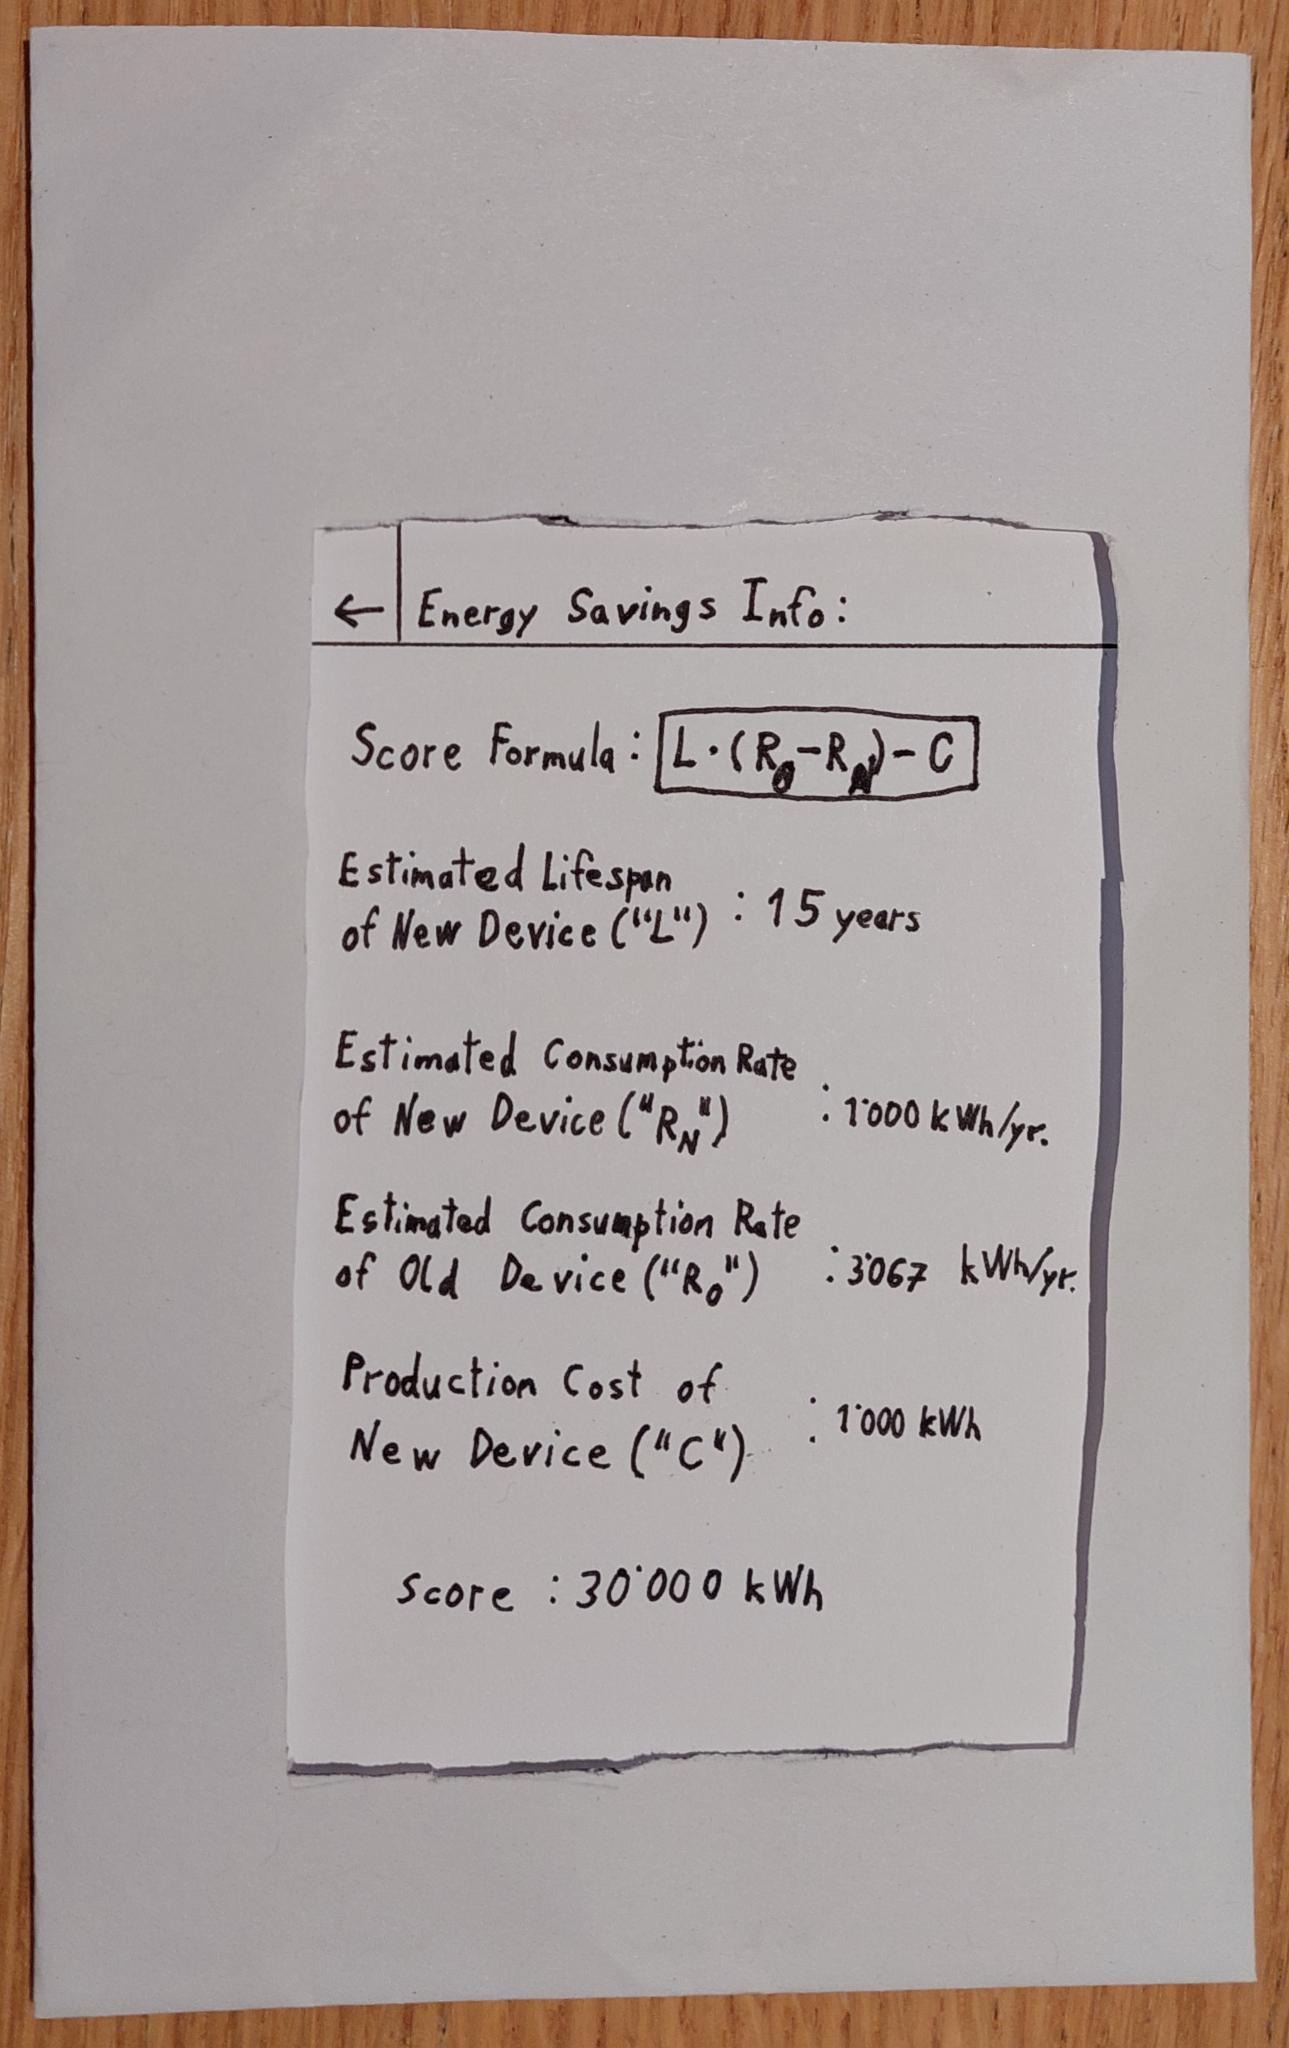 ← Energy Savings Info:
Score Formula: L·(R_O-R_N)-C
Estimated Lifespan
of New Device ("L") : 15 years
Estimated Consumption Rate
of New Device ("R_N") : 1'000 kWh/yr.
Estimated Consumption Rate
of Old Device ("R_O") : 3'067 kWh/yr.
Production Cost of
New Device ("C") : 1'000 kWh
Score : 30'000 kWh